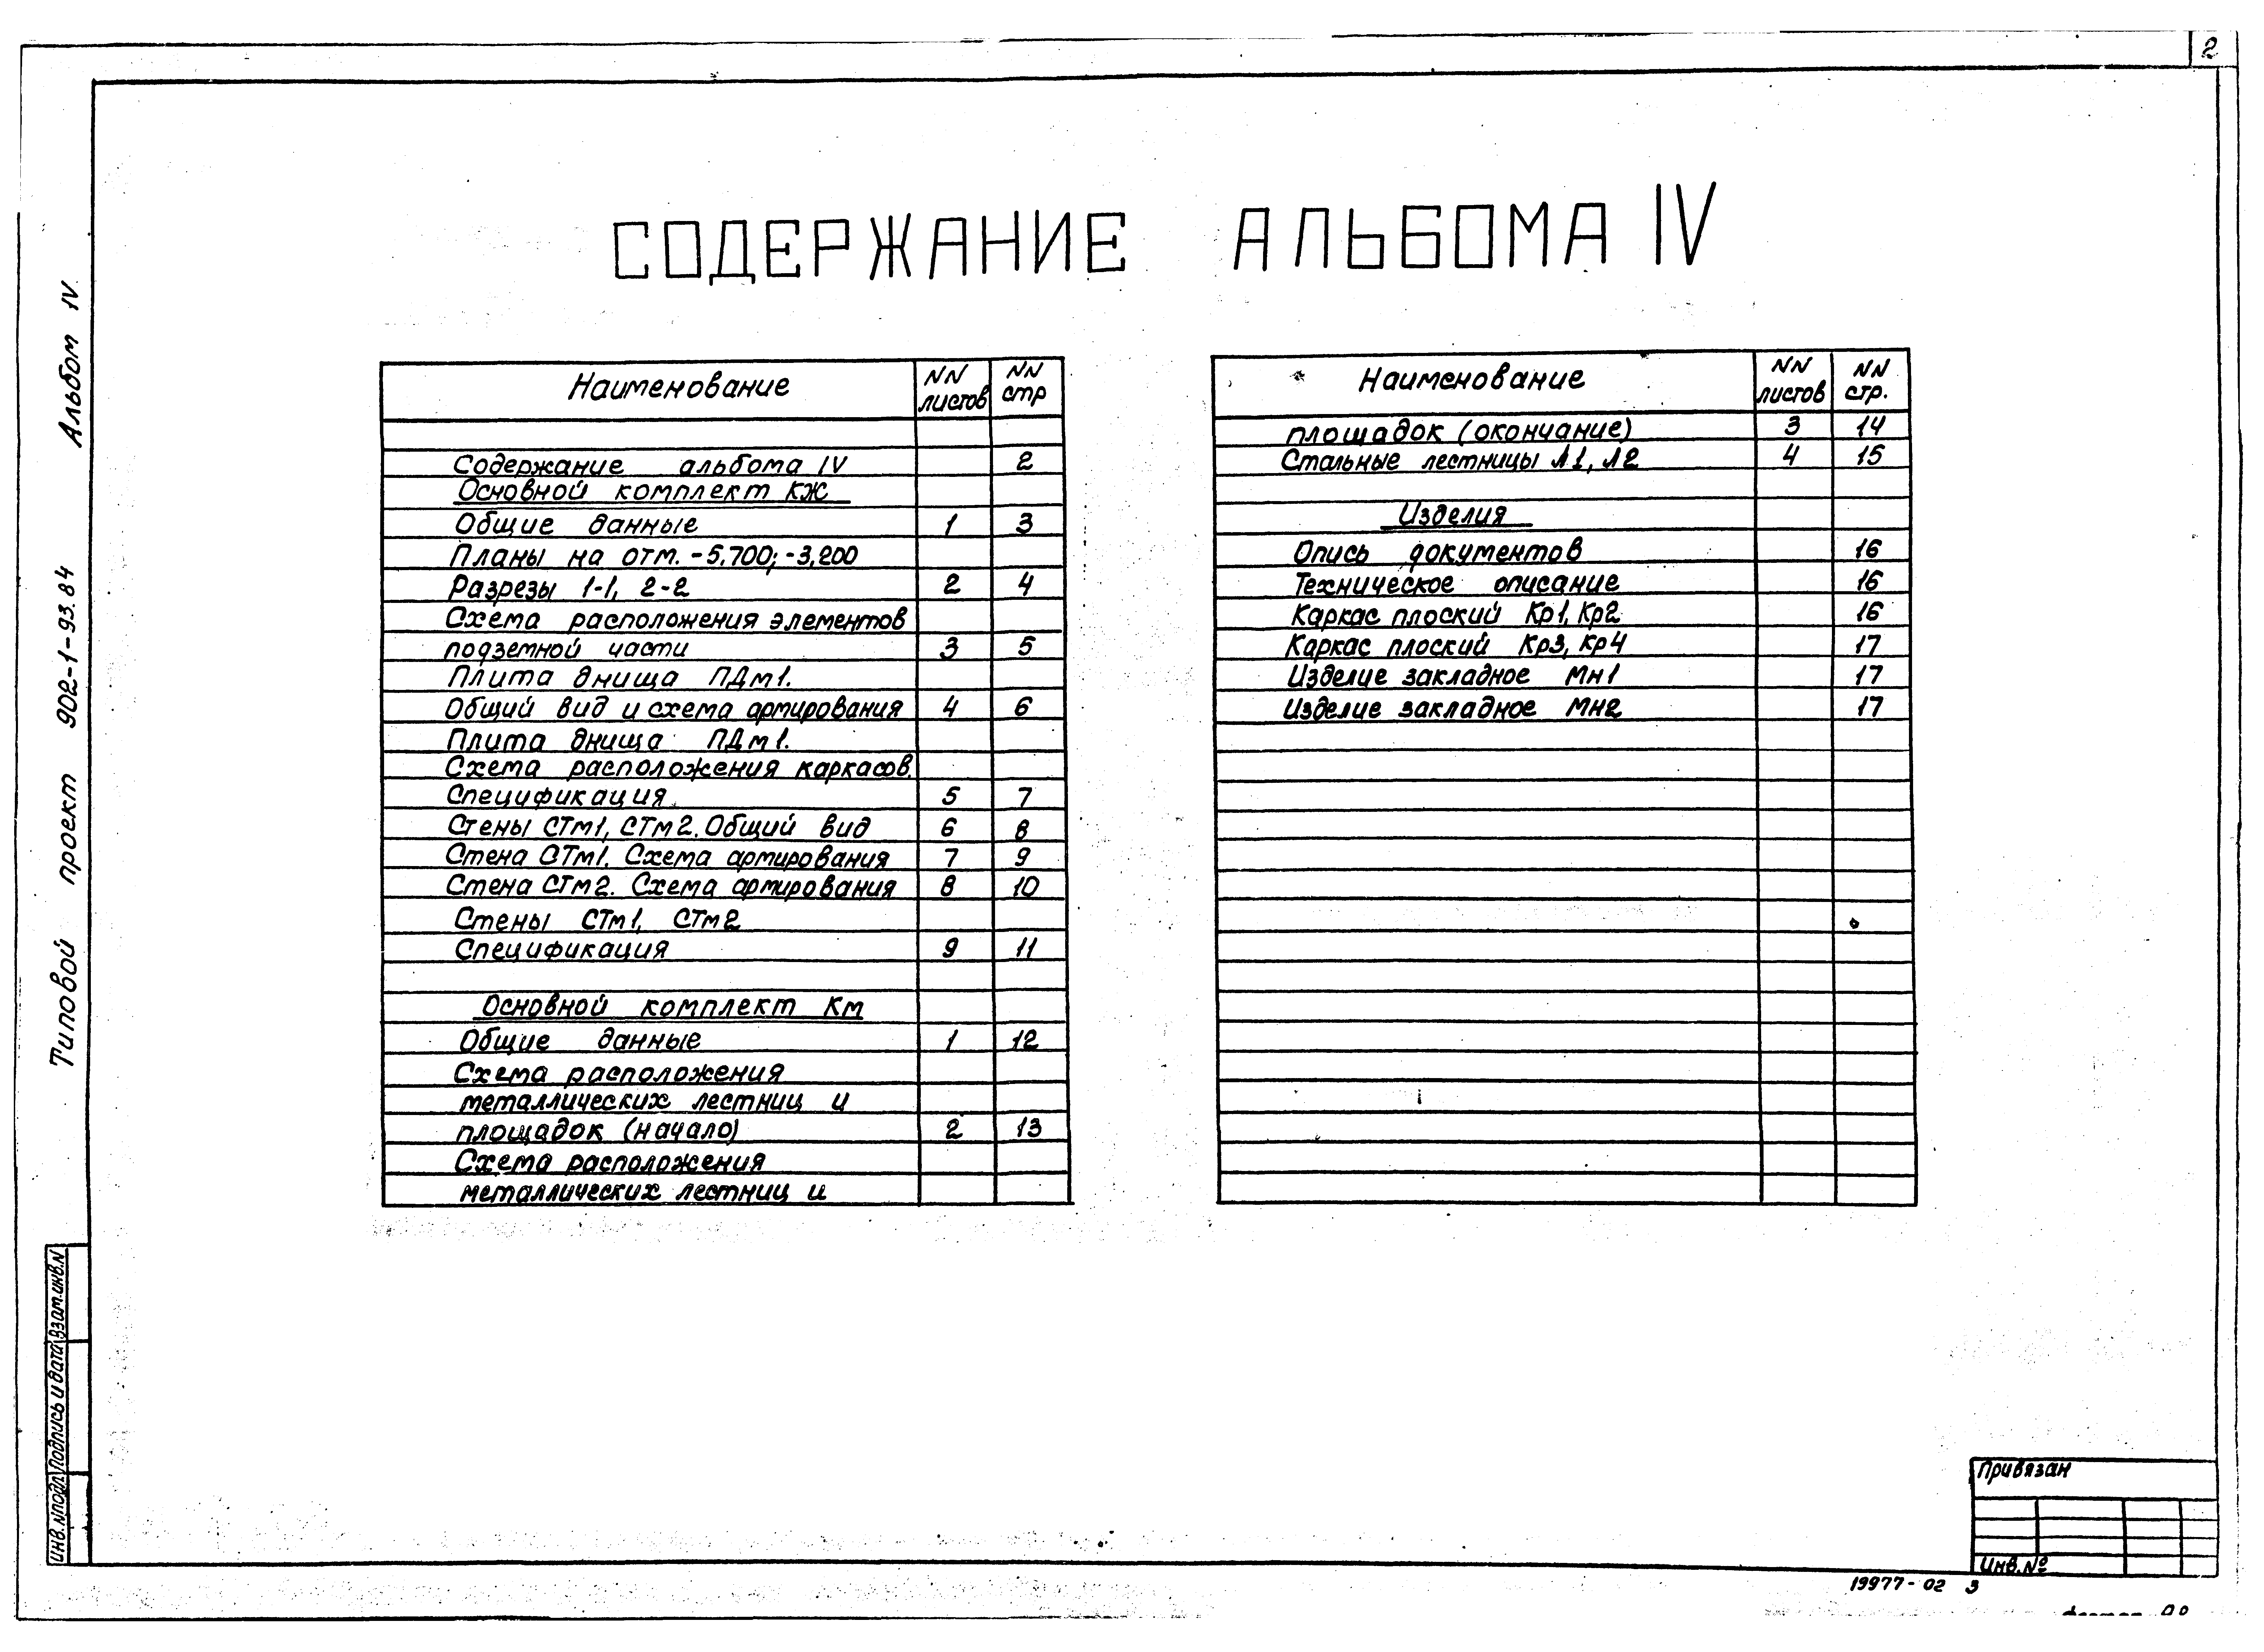 2
СОДЕРЖАНИЕ АЛЬБОМА IV
Альбом IV
Типовой проект 902-1-93.84
Наименование NN листов NN стр
Содержание альбома IV 2
Основной комплект КЖ
Общие данные 1 3
Планы на отм. -5.700; -3,200
Разрезы 1-1, 2-2 2 4
Схема расположения элементов
подземной части 3 5
Плита днища ПДм1.
Общий вид и схема армирования 4 6
Плита днища ПДм1.
Схема расположения каркасов.
Спецификация 5 7
Стены СТм1, СТм2. Общий вид 6 8
Стена СТм1. Схема армирования 7 9
Стена СТм2. Схема армирования 8 10
Стены СТм1, СТм2
Спецификация 9 11
Основной комплект Км
Общие данные 1 12
Схема расположения
металлических лестниц и
площадок (начало) 2 13
Схема расположения
металлических лестниц и
Наименование NN листов NN стр.
площадок (окончание) 3 14
Стальные лестницы Л1, Л2 4 15
Изделия
Опись документов 16
Техническое описание 16
Каркас плоский Кр1, Кр2 16
Каркас плоский Кр3, Кр4 17
Изделие закладное Мн1 17
Изделие закладное Мн2 17
Инв.Nподл. Подпись и дата Взам.инв.N
Привязан
Инв.№
19977-02 3